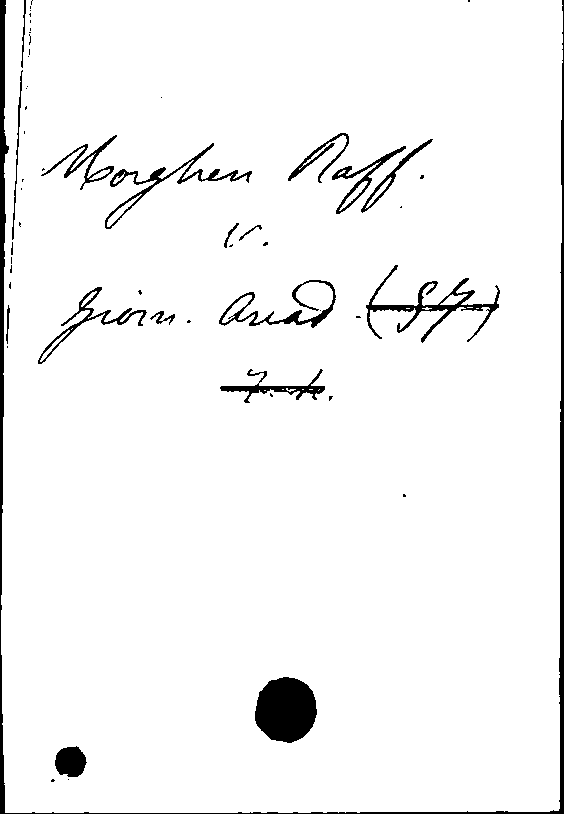 Morghen Raff.
v.
Giorn. Arcad (57)